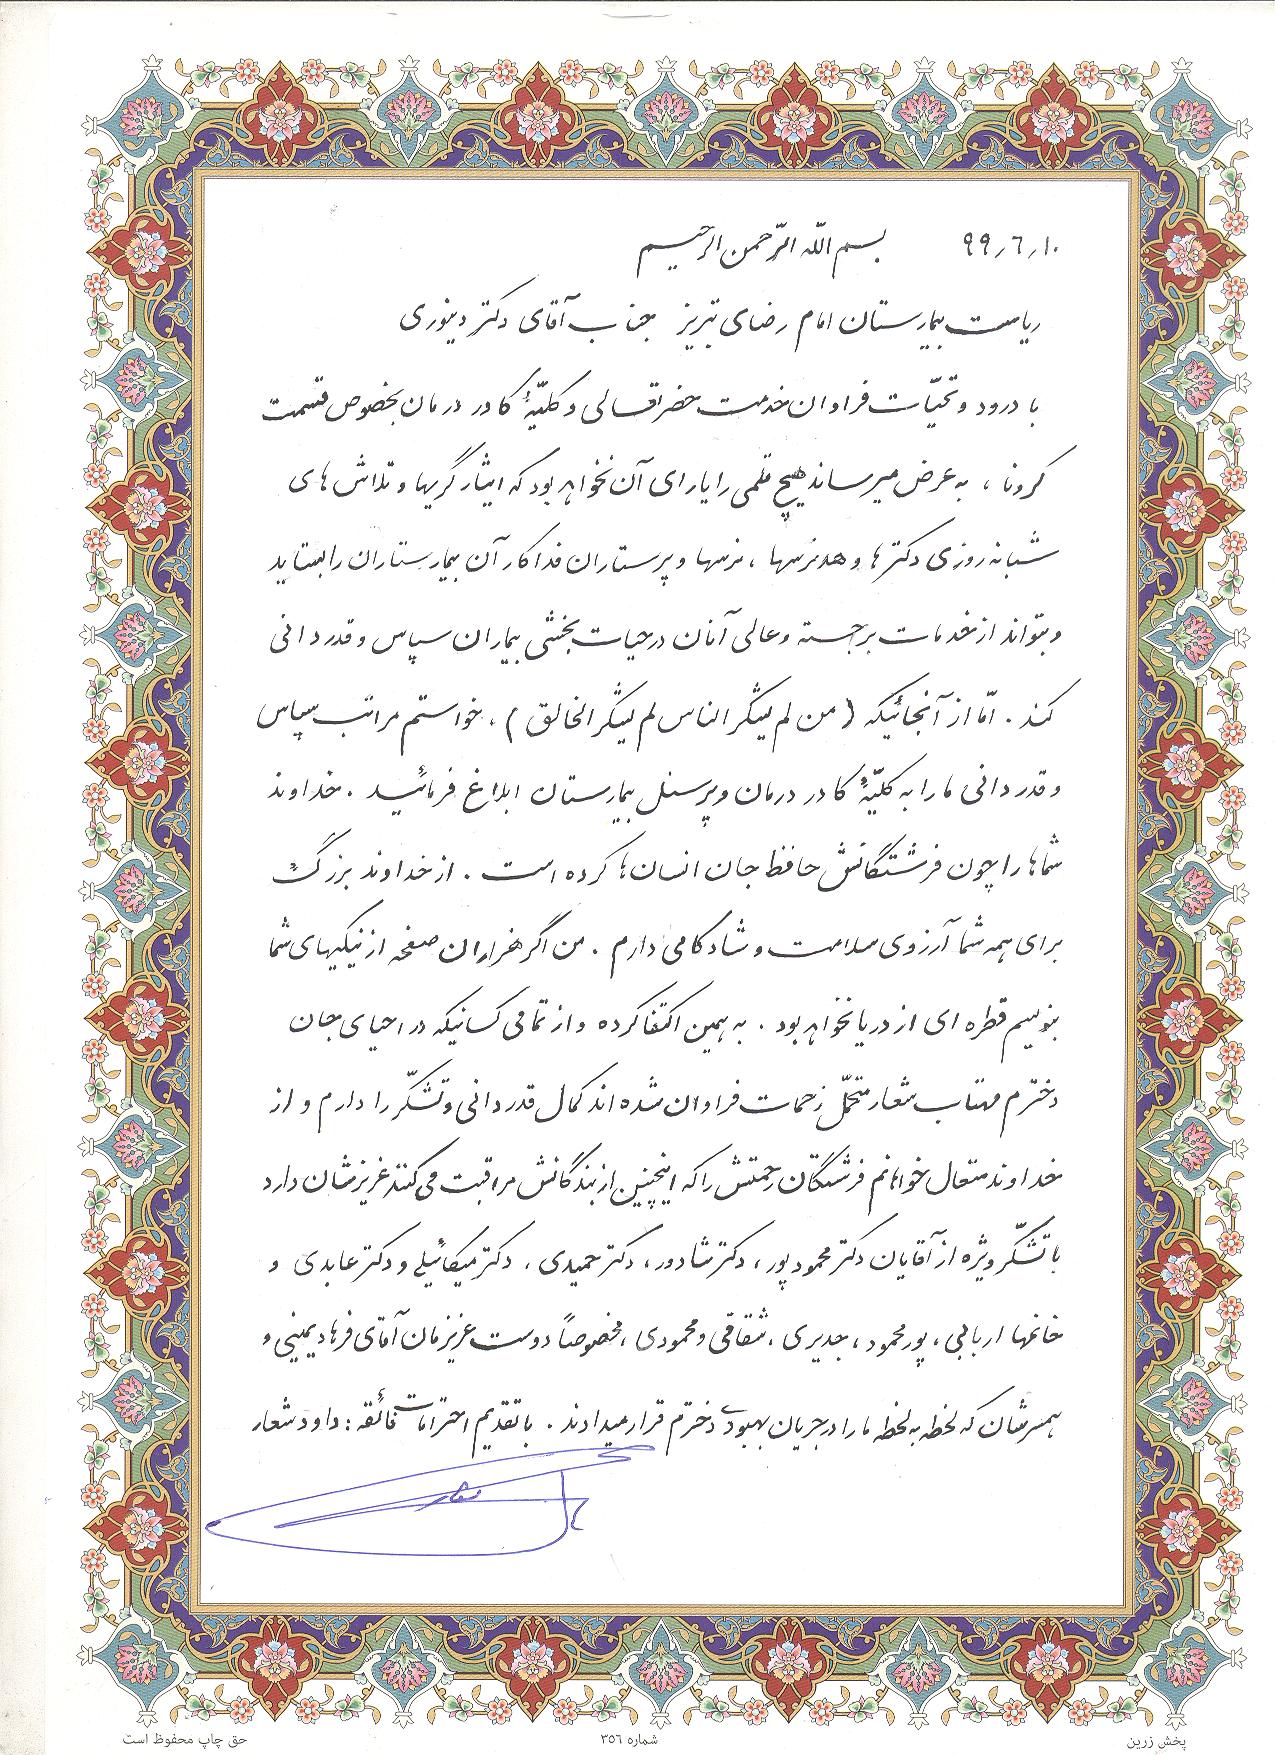 ۹۹٫۶٫۱۰ بسم اللّه الرّحمن الرحیم
ریاست بیمارستان امام رضای تبریز جناب آقای دکتر دینوری
با درود و تحیّات فراوان خدمت حضرتعالی و کلیّهٔ کادر درمان بخصوص قسمت
کرونا ، به عرض میرساند هیچ قلمی را یارای آن نخواهد بود که ایثارگریها و تلاش های
شبانه روزی دکترها و هدنرسها ، نرسها و پرستاران فداکار آن بیمارستاران را بستاید
و بتواند از خدمات برجسته و عالی آنان در حیات بخشی بیماران سپاس و قدردانی
کند . امّا از آنجائیکه ( من لم یشکر الناس لم یشکر الخالق ) ، خواستم مراتب سپاس
و قدردانی ما را به کلیّهٔ کادر درمان و پرسنل بیمارستان ابلاغ فرمائید . خداوند
شماها را چون فرشتگانش حافظ جان انسان ها کرده است . از خداوند بزرگ
برای همه شما آرزوی سلامت و شادکامی دارم . من اگر هزاران صفحه از نیکیهای شما
بنویسم قطره ای از دریا نخواهد بود . به همین اکتفا کرده و از تمامی کسانیکه در احیای جان
دخترم مهتاب شعار متحمّل زحمات فراوان شده اند کمال قدردانی و تشکّر را دارم و از
خداوند متعال خواهانم فرشتگان رحمتش را که اینچنین از بندگانش مراقبت می کنند عزیزشان دارد
با تشکّر ویژه از آقایان دکتر محمودپور ، دکتر شادور ، دکتر حمیدی ، دکتر میکائیلی و دکتر عابدی و
خانمها اربابی ، پورمحمود ، جدیری ، شقاقی و محمودی ، مخصوصاً دوست عزیزمان آقای فرهاد یمینی و
همسرشان که لحظه به لحظه ما را در جریان بهبودی دخترم قرار میدادند . با تقدیم احترامات فائقه : داود شعار
شعار
پخش زرین
شماره ۳۵۶
حق چاپ محفوظ است